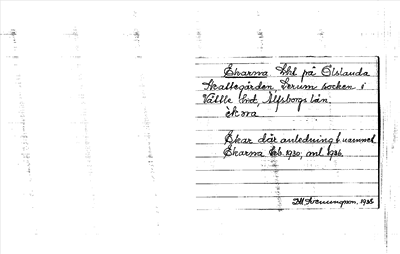 Ekarna, lht på Ölslanda
Skattegården, Lerum socken i
Vättle hd, Älfsborgs län.
ẹkɷa
Ekar där anledning t. namnet
Ekarna feb. 1930, ml. 1936.
1938